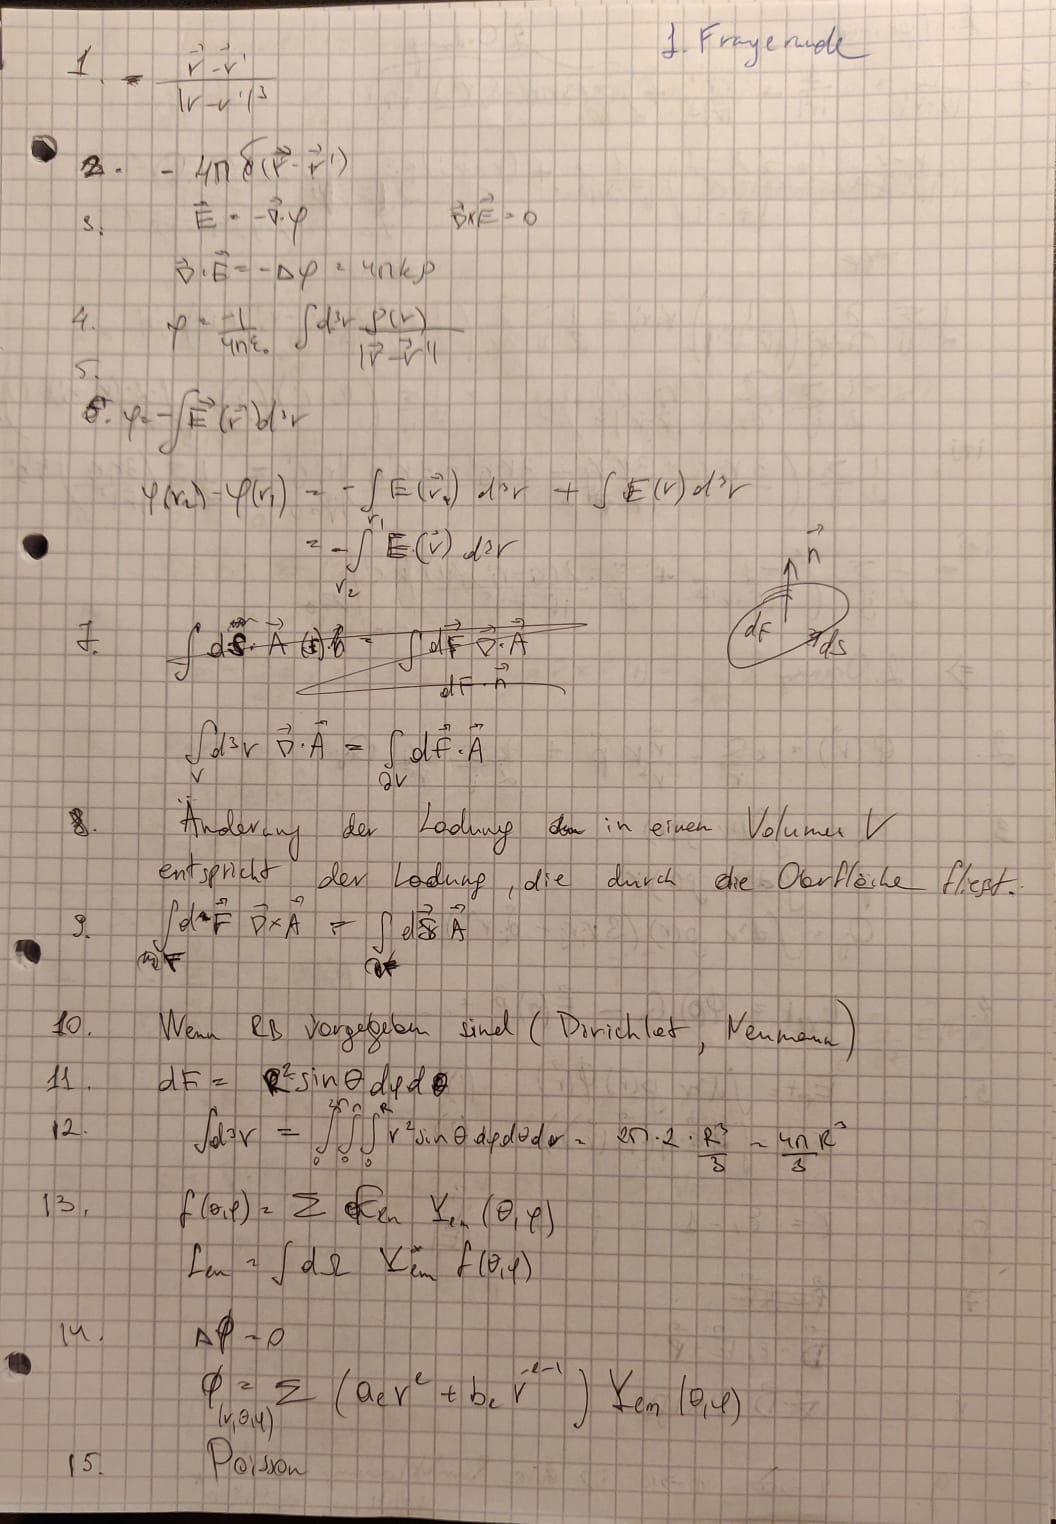 1. Fragerunde
1. - \frac{\vec{r}-\vec{r}'}{|r-r'|^3}
2. - 4π δ(\vec{r}-\vec{r}')
3. \vec{E} = -\vec{∇}·φ    \vec{∇}×\vec{E} = 0
\vec{∇}·\vec{E} = -Δφ = 4πkρ
4. φ = \frac{-1}{4πε_0} ∫d³r \frac{ρ(r)}{|\vec{r}-\vec{r}'|}
5.
6. φ = -∫\vec{E}(\vec{r})d³r
φ(r_2) - φ(r_1) = -∫E(\vec{r}_2) d³r + ∫E(r) d³r
= -∫_{r_2}^{r_1} E(\vec{r}) d³r
\vec{n}
dF
ds
7. ∫d\vec{S}·\vec{A} = ∫d\vec{F} \vec{∇}·\vec{A}
dF·\vec{n}
∫_V d³r \vec{∇}·\vec{A} = ∫_{∂V} d\vec{F}·\vec{A}
8. Änderung der Ladung in einen Volumen V
entspricht der Ladung, die durch die Oberfläche fliest.
9. ∫_F d\vec{F} \vec{∇}×\vec{A} = ∫_{∂F} d\vec{S} \vec{A}
10. Wenn RB vorgegeben sind (Dirichlet, Neumann)
11. dF = R² sinθ dφdθ
12. ∫d³r = ∫_0^{2π}∫_0^π∫_0^R r² sinθ dφdθdr = 2π·2·\frac{R^3}{3} = \frac{4π}{3}R^3
13. f(θ,φ) = Σ f_{lm} Y_{lm}(θ,φ)
f_{lm} = ∫dΩ Y*_{lm} f(θ,φ)
14. Δϕ = 0
ϕ(r,θ,φ) = Σ (a_l r^l + b_l r^{-l-1}) Y_{lm}(θ,φ)
15. Poisson